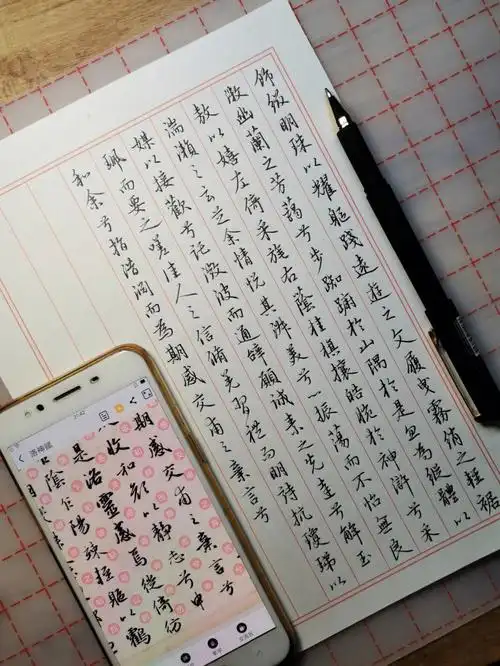 飾綴明珠以耀軀踐遠遊之文履曳霧綃之輕裾
微幽蘭之芳藹兮步踟躕於山隅於是忽焉縱體以
敖以嬉左倚采旄右蔭桂旗攘皓腕於神滸兮采
湍瀨之玄芝余情悅其淑美兮心振蕩而不怡無良
媒以接歡兮託微波而通辭願誠素之先達兮解玉
珮而要之嗟佳人之信脩羌習禮而明詩抗瓊珶以
和余兮指潛淵而為期感交甫之棄言兮
21:42
洛神賦
期感交甫之棄言兮
收和顏以靜志兮申
是洛靈感焉徙倚彷
陰乍陽竦輕軀以鶴